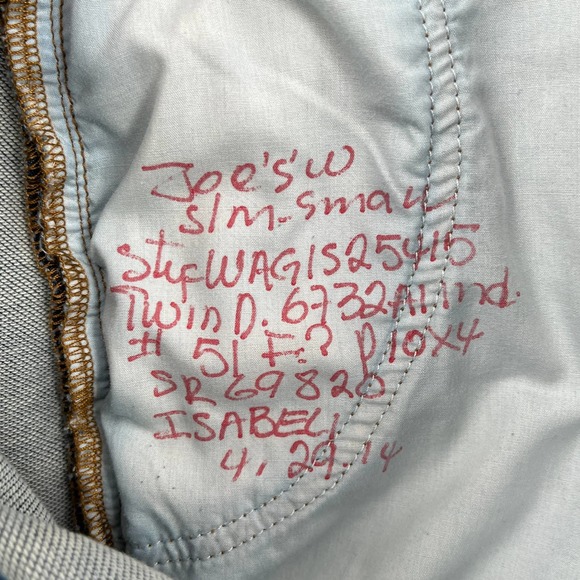 Joe's's W
S/M-Small
Sty WAGIS25415
TWIN D. 6732A
# 51 F.? P10X4
SR 69820
ISABEL
4.29.14